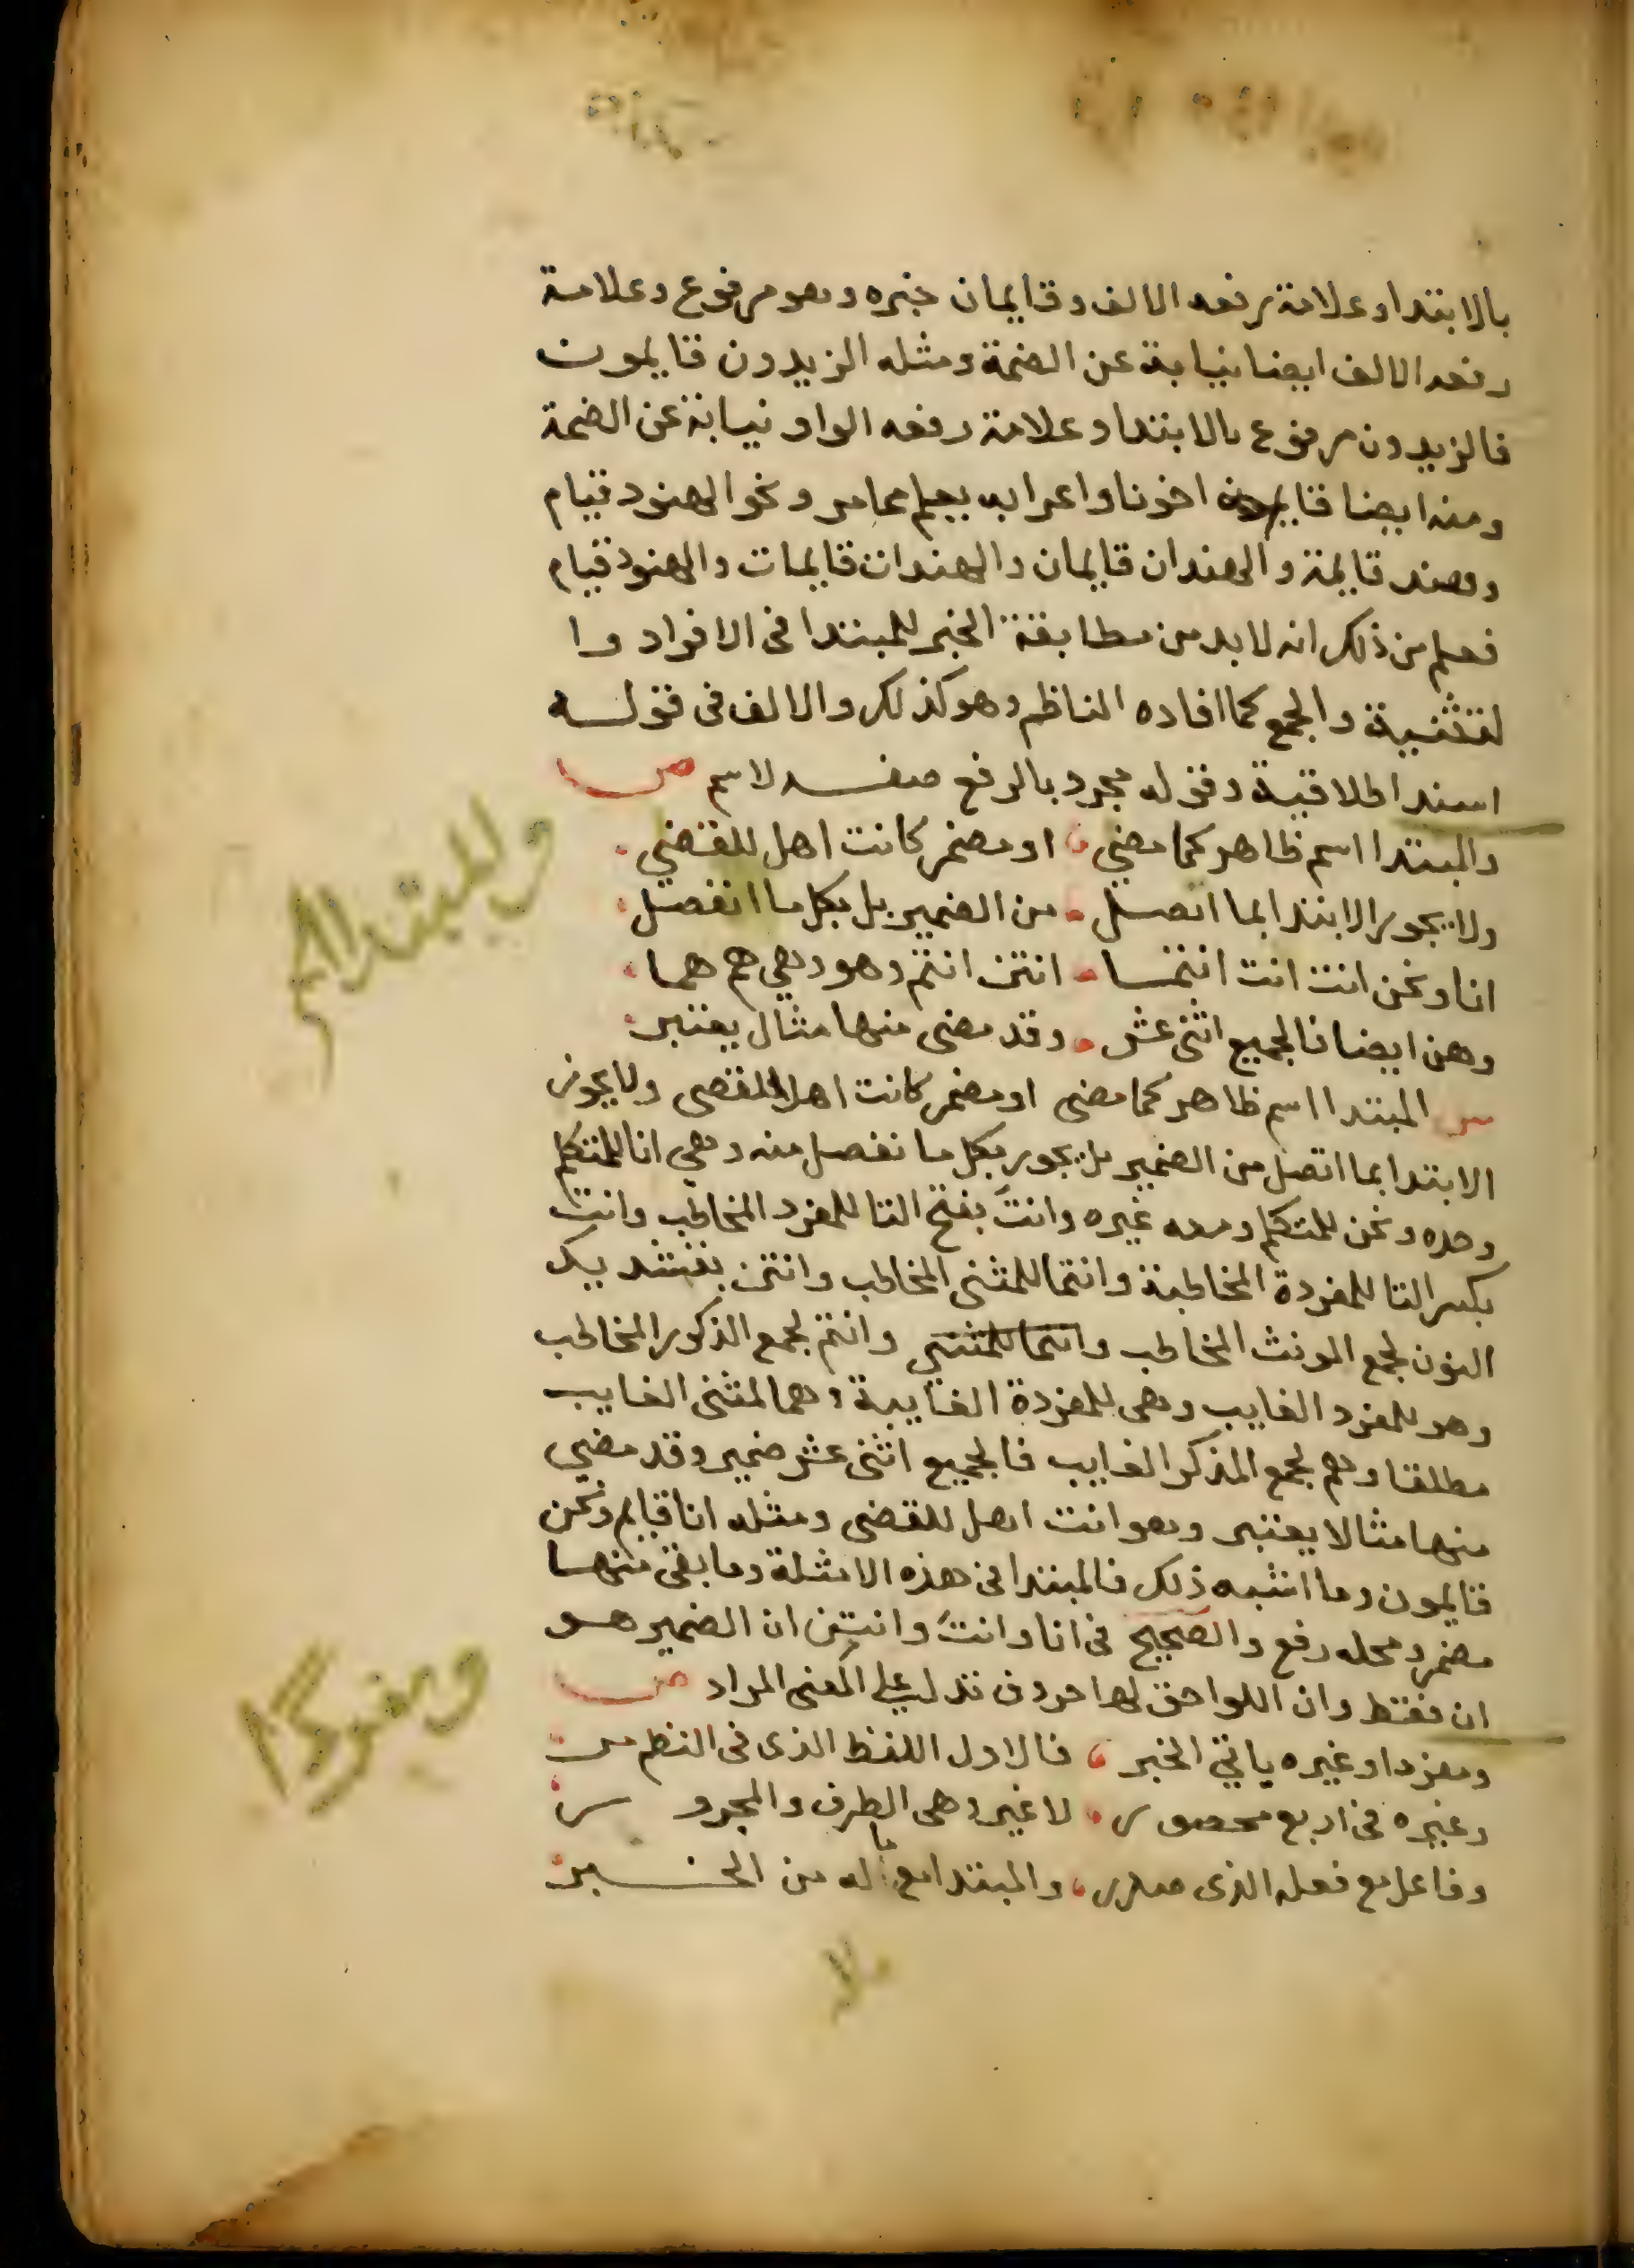 بالابتدا وعلامة رفعه الالف وقايمان خبره وهو مرفوع وعلامة
رفعه الالف ايضا نيابة عن الضمة ومثله الزيدون قايمون
فالزيدون مرفوع بالابتدا وعلامة رفعه الواو نيابة عن الضمة
ومنه ايضا قايم اخونا واعرابه يعلم مما مر ونحو الهنود قيام
وهند قايمة والهندان قايمان والهندات قايمات والهنود قيام
فعلم من ذلك انه لابد من مطابقة الخبر للمبتدا فى الافراد وا
لتثنية والجمع كما افاده الناظم وهو كذلك والالف فى قوله
اسندا طلاقية وقوله مجرد بالرفع صفة لاسم ص
والمبتدا اسم ظاهر كما مضي او مضمر كانت اهل للقضي
ولا يجوز الابتدا بما اتصل من الضمير بل بكل ما انفصل
انا ونحن انت انت انتما انتن انتم وهو وهي هم هما
وهن ايضا فالجميع اثنى عشر وقد مضى منها مثال يعتبر
س المبتدا اسم ظاهر كما مضى او مضمر كانت اهل للقضى ولا يجوز
الابتدا بما اتصل من الضمير بل يجوز بكل ما نفصل منه وهي انا للمتكلم
وحده ونحن للمتكلم ومعه غيره وانتَ بفتح التا للمفرد المخاطب وانت
بكسر التا للمفردة المخاطبة وانتما للمثنى المخاطب وانتن بتشديد
النون لجمع المونث المخاطب وانتما للمثنى وانتم لجمع الذكور المخاطب
وهو للمفرد الغايب وهى للمفردة الغايبة وهما لمثنى الغايب
مطلقا وهم لجمع المذكر الغايب فالجميع اثنى عشر ضمير وقد مضي
منها مثالا يعتبر وهو انت اهل للقضى ومثله انا قايم ونحن
قايمون وما اشبه ذلك فالمبتدا فى هذه الامثلة وما بقى منها
مضمر ومحله رفع والصحيح فى انا وانتَ وانتن ان الضمير هو
ان فقط وان اللواحق لها حروف تدل على المعنى المراد ص
ومفردا وغيره ياتي الخبر فالاول اللفظ الذى فى النظم مر
وغيره فى اربع محصور لا غير وهى الظرف والمجرور
وفاعل مع فعله الذى صدر والمبتدا مع ما له من الخبر
والمبتدا اسم
ومفردا